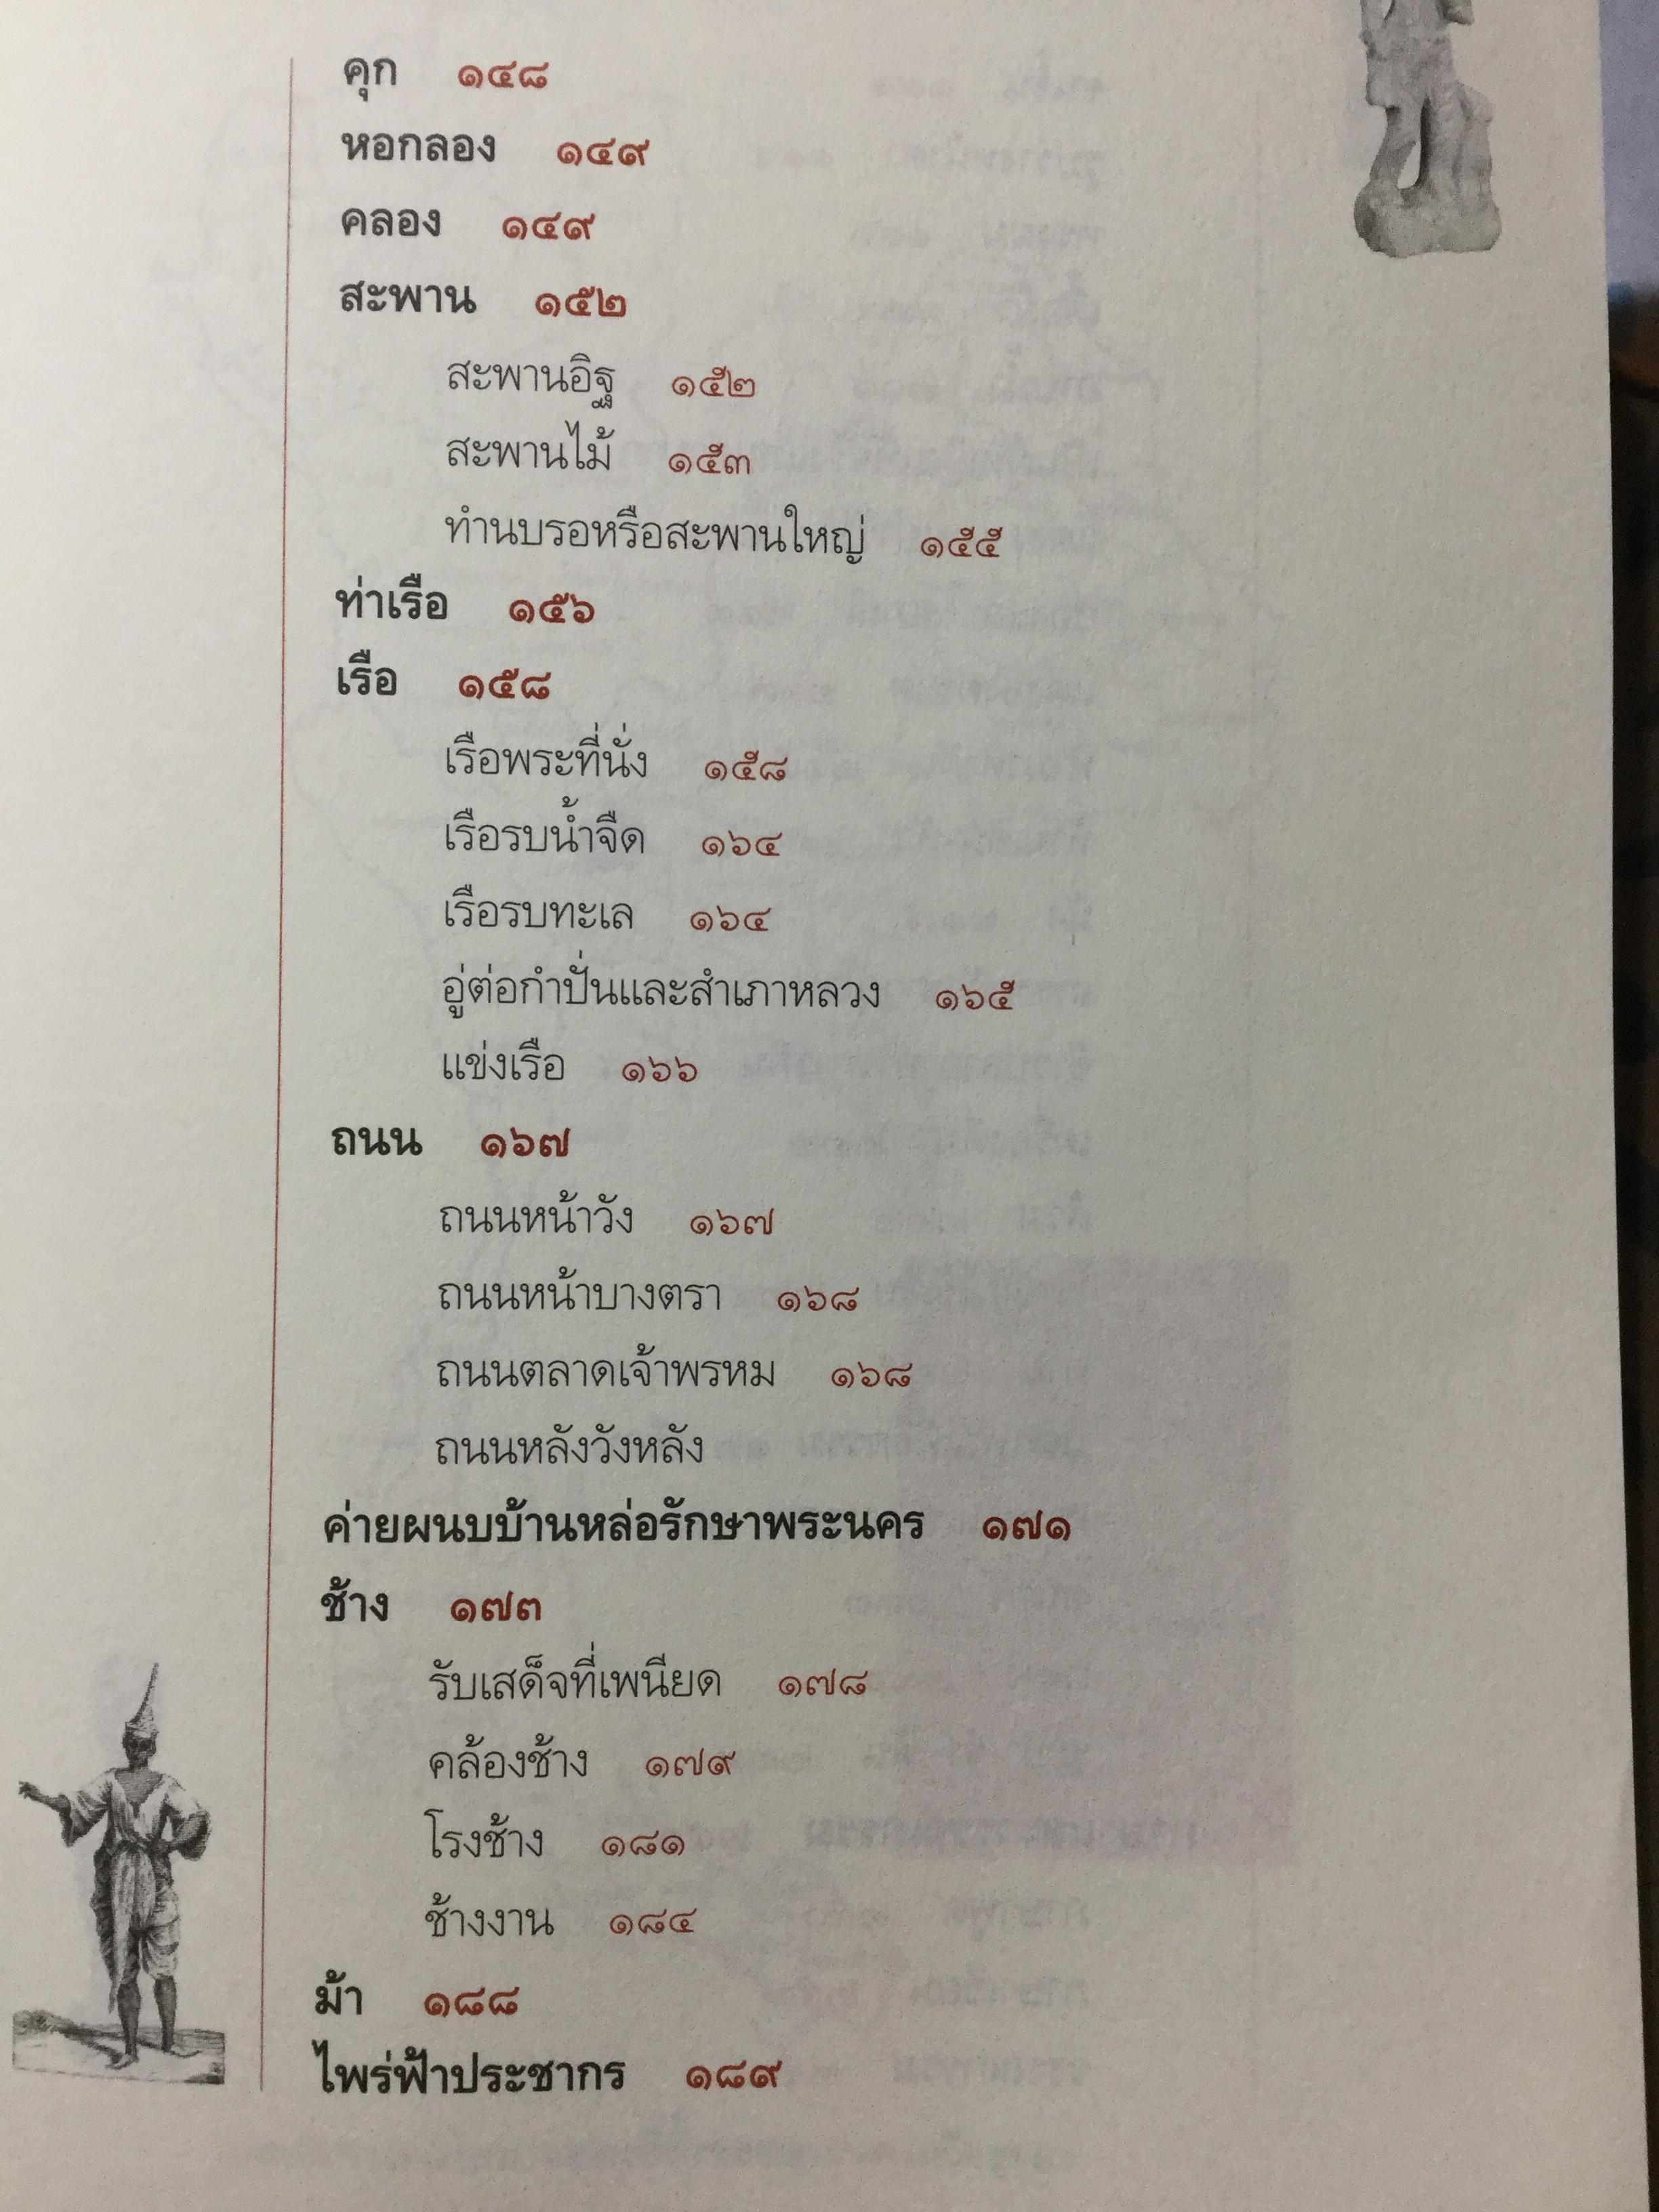 คุก ๑๔๘
หอกลอง ๑๔๙
คลอง ๑๔๙
สะพาน ๑๕๒
สะพานอิฐ ๑๕๒
สะพานไม้ ๑๕๓
ทำนบรอหรือสะพานใหญ่ ๑๕๕
ท่าเรือ ๑๕๖
เรือ ๑๕๘
เรือพระที่นั่ง ๑๕๘
เรือรบน้ำจืด ๑๖๔
เรือรบทะเล ๑๖๔
อู่ต่อกำปั่นและสำเภาหลวง ๑๖๕
แข่งเรือ ๑๖๖
ถนน ๑๖๗
ถนนหน้าวัง ๑๖๗
ถนนหน้าบางตรา ๑๖๘
ถนนตลาดเจ้าพรหม ๑๖๘
ถนนหลังวังหลัง
ค่ายผนบบ้านหล่อรักษาพระนคร ๑๗๑
ช้าง ๑๗๓
รับเสด็จที่เพนียด ๑๗๘
คล้องช้าง ๑๗๙
โรงช้าง ๑๘๑
ช้างงาน ๑๘๔
ม้า ๑๘๘
ไพร่ฟ้าประชากร ๑๘๙